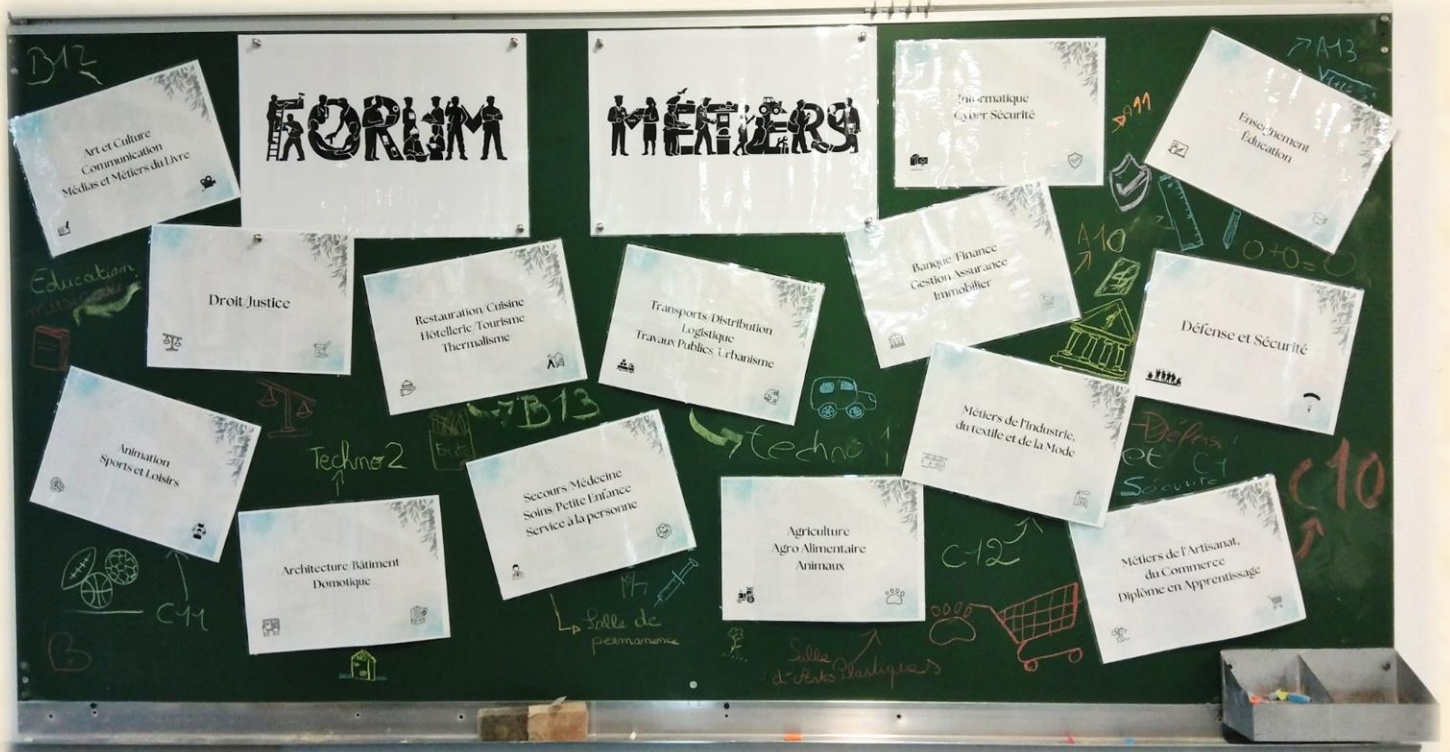 B12
FORUM
MÉTIERS
A13
Art et Culture
Communication
Médias et Métiers du Livre
Informatique
Cyber Sécurité
A11
Enseignement
Éducation
Education
musicale
Droit/Justice
Restauration/Cuisine
Hôtellerie/Tourisme
Thermalisme
Transports/Distribution
Logistique
Travaux Publics/Urbanisme
Banque/Finance
Gestion Assurance
Immobilier
A10
0+0=0
Défense et Sécurité
Animation
Sports et Loisirs
Techno 2
B13
techno 1
Métiers de l'Industrie,
du textile et de la Mode
Défense
et C1
Sécurité
C10
Architecture/Bâtiment
Domotique
Secours/Médecine
Soins/Petite Enfance
Service à la personne
Agriculture
Agro Alimentaire
Animaux
C12
Métiers de l'Artisanat,
du Commerce
Diplôme en Apprentissage
C11
Salle de
permanence
Salle
d'Arts Plastiques